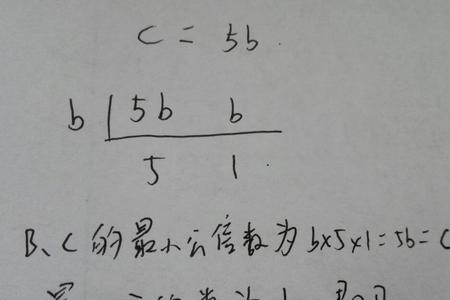 c = 5b.
b 5b b
5 1.
B、C的最小公倍数为b×5×1=5b=C